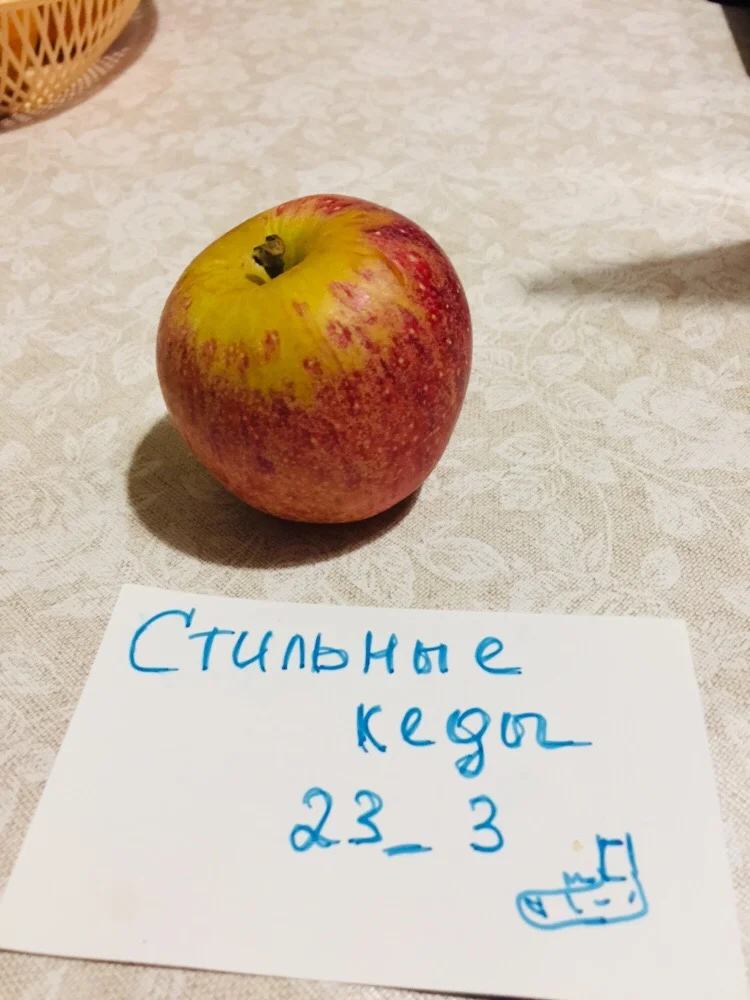 Стильные
кеды
23_ 3